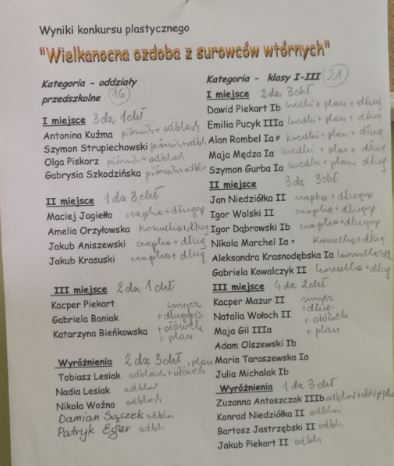 Wyniki konkursu plastycznego
"Wielkanocna ozdoba z surowców wtórnych"
Kategoria - oddziały
przedszkolne (16)
I miejsce 3 dz 1 chł
Antonina Kuźma piórnik + odblask
Szymon Strupiechowski piórnik + odbl
Olga Piskorz piórnik + odblask
Gabrysia Szkodzińska piórnik + odbl
II miejsce 1 dz 3 chł
Maciej Jagiełło czapka + długop
Amelia Orzyłowska + długop
Jakub Aniszewski czapka + dług
Jakub Krasuski czapka + dług
III miejsce 2 dz 1 chł
Kacper Piekart
Gabriela Baniak + długopis
Katarzyna Bieńkowska + ołówek
+ plan
Wyróżnienia 2 dz 3 chł
Tobiasz Lesiak odblask + ołówek + plan
Nadia Lesiak odblask
Nikola Woźna odblask
Damian Sączek odblask
Patryk Eger odbla
Kategoria - klasy I-III (21)
I miejsce 2 dz 3 chł
Dawid Piekart Ib kredki + plan + długop
Emilia Pucyk IIIa kredki + plan + dług
Alan Rombel Ia kredki + plan + dług
Maja Mędza Ia kredki + plan + dług
Szymon Gurba Ia kredki + plan + dług
II miejsce 3 dz 3 chł
Jan Niedziółka II czapka + długop
Igor Wolski II czapka + długop
Igor Dąbrowski Ib czapka + długop
Nikola Marchel Ia + dług
Aleksandra Krasnodębska Ia + dług
Gabriela Kowalczyk II + dług
III miejsce 4 dz 2 chł
Kacper Mazur II
Natalia Wołoch II + dług
Maja Gil IIIa + ołówek
Adam Olszewski Ib + plan
Maria Taraszewska Ia
Julia Michalak Ib
Wyróżnienia 1 dz 3 chł
Zuzanna Antoszczak IIIb odblask
Konrad Niedziółka II odbla
Bartosz Jastrzębski II odbla
Jakub Piekart II odbla